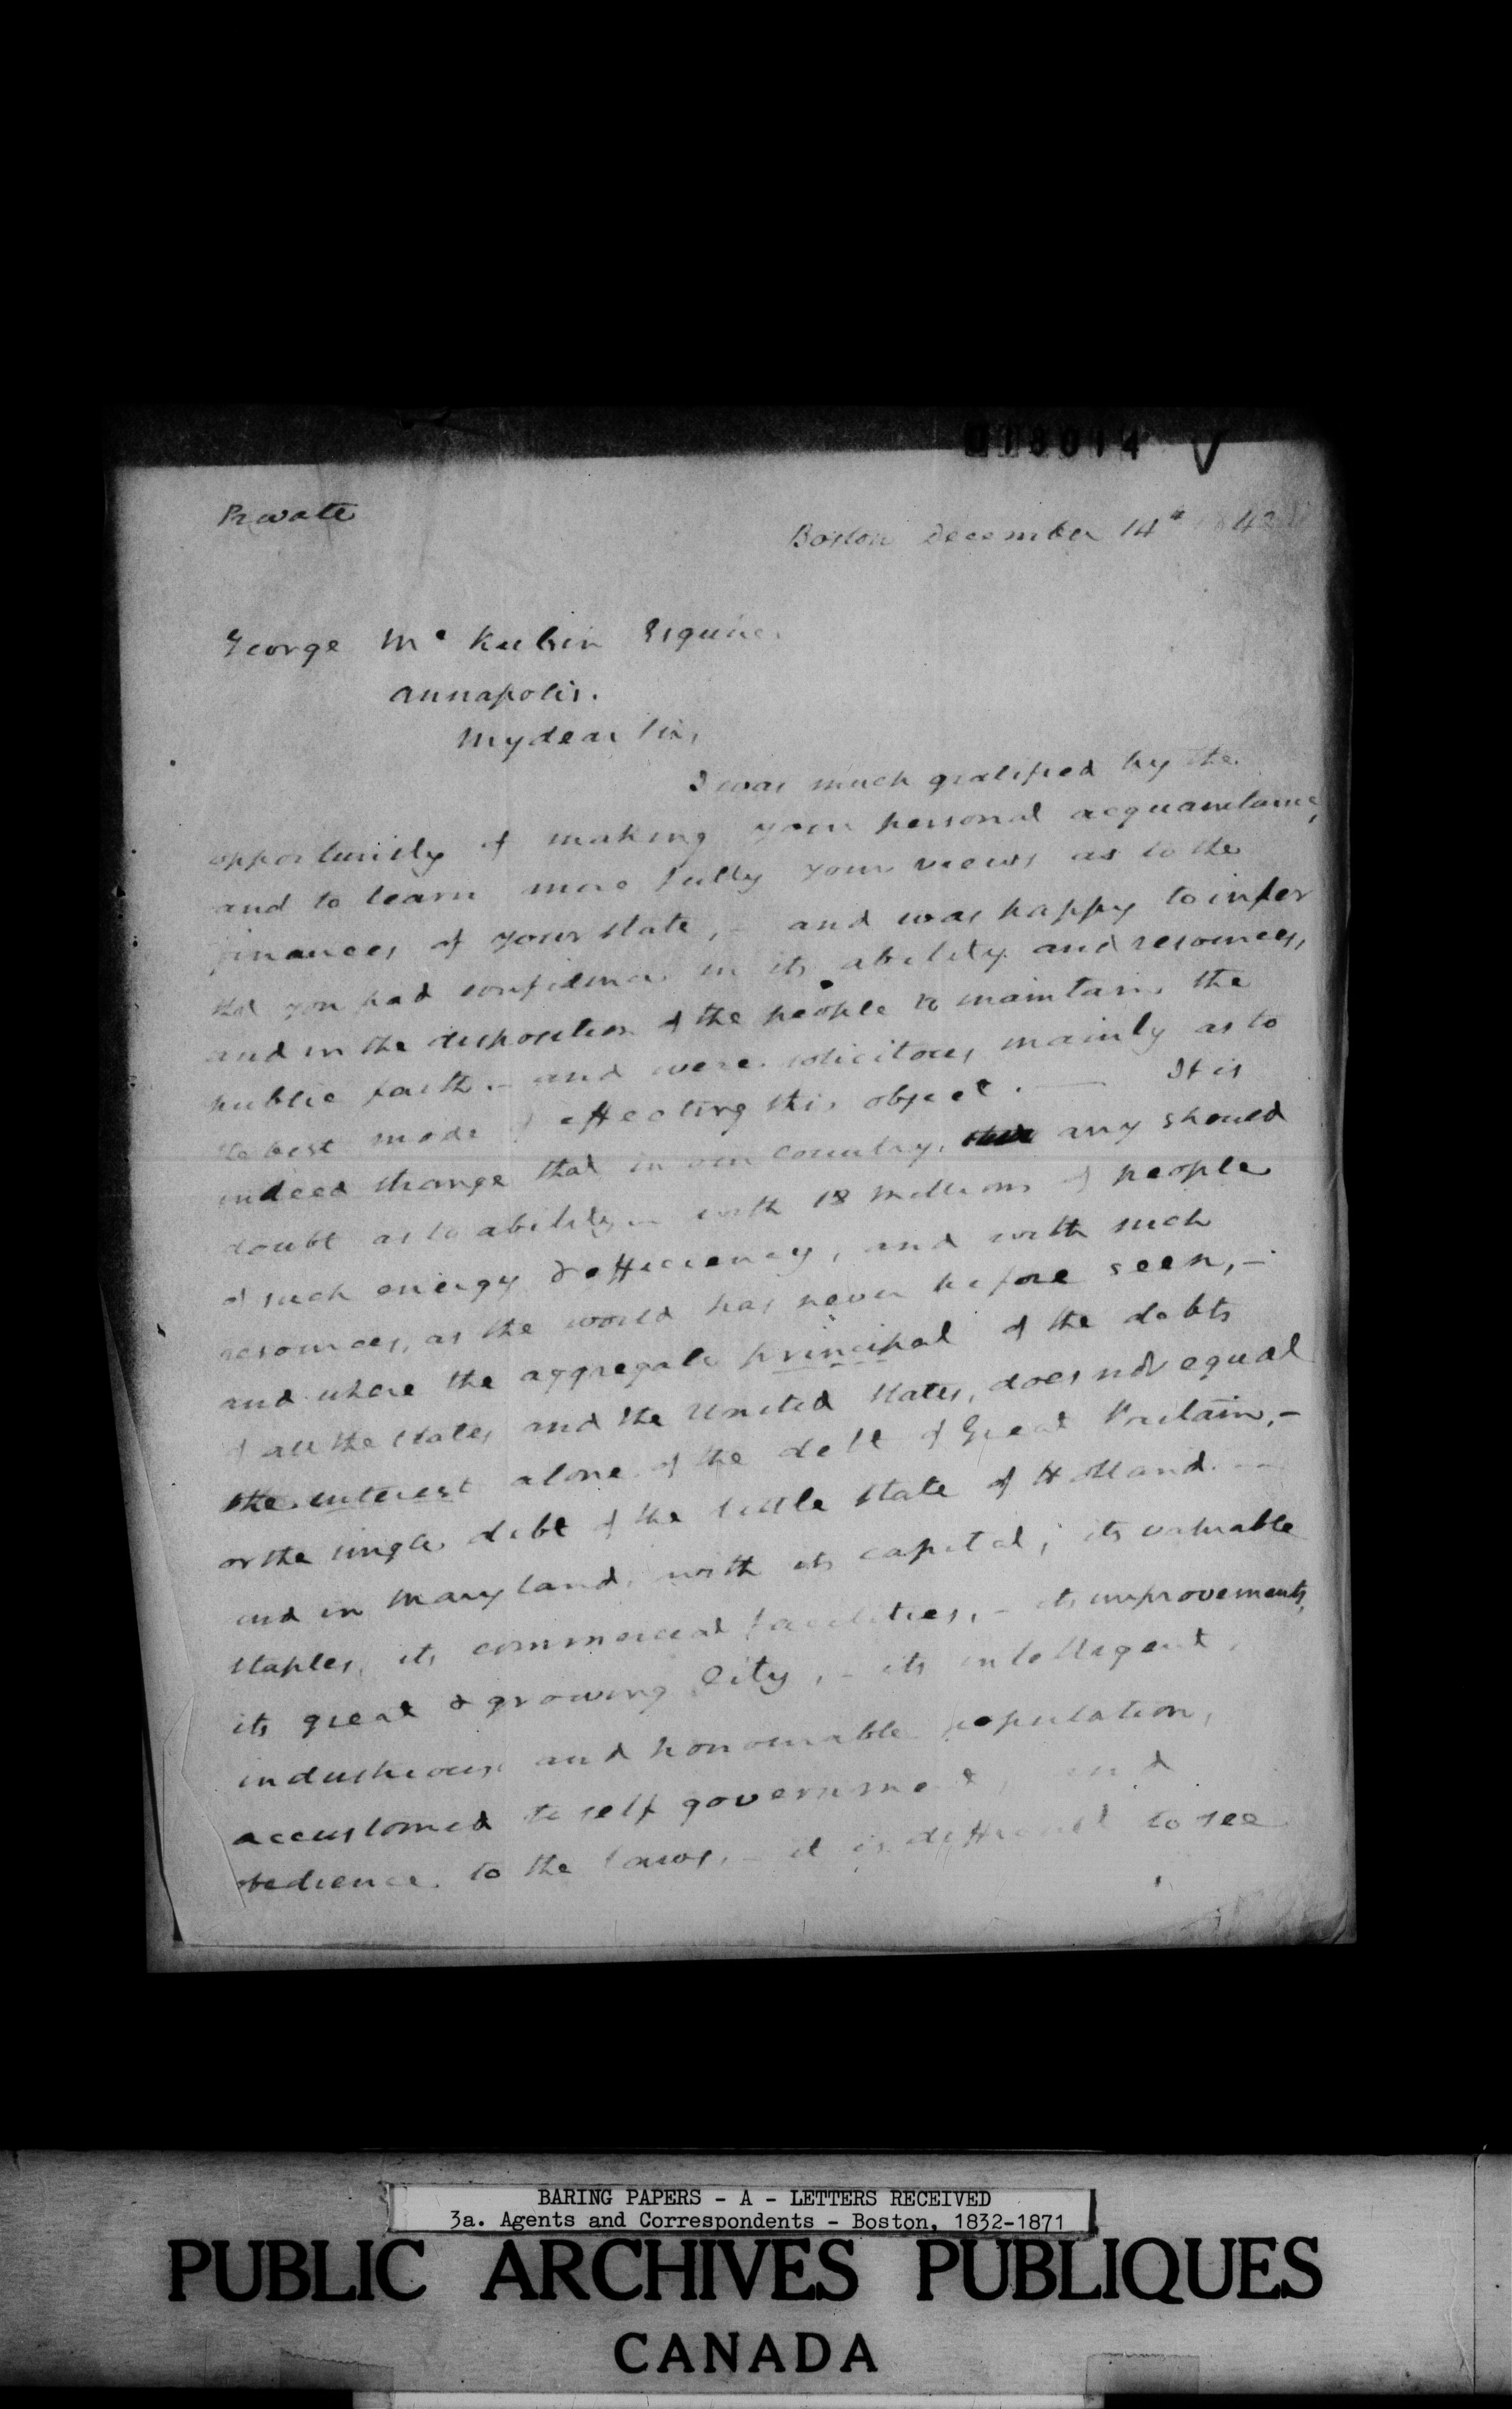 018014
Private
Boston December 14th 1843
George McKubin Esquire.
Annapolis.
My dear Sir,
I was much gratified by the
opportunity of making your personal acquaintance,
and to learn more fully your views as to the
finances of your state, - and was happy to infer
that you had confidence in its ability and resources,
and in the disposition of the people to maintain the
public faith. - and were solicitous, mainly as to
the best mode of effecting this object. — It is
indeed strange that in our country, any should
doubt as to ability - with 18 millions of people
of such energy & efficiency, and with such
resources, as the world has never before seen, -
and where the aggregate principal of the debts
of all the States and the United States, does not equal
the interest alone of the debt of Great Britain, -
or the single debt of the little State of Holland. —
and in Maryland, with its capital, its valuable
staples, its commercial facilities, - its improvements,
its great & growing City, - its intelligent,
industrious and honourable population,
accustomed to self government, and
obedience to the laws, - it is difficult to see
BARING PAPERS - A - LETTERS RECEIVED
3a. Agents and Correspondents - Boston, 1832-1871
PUBLIC ARCHIVES PUBLIQUES
CANADA